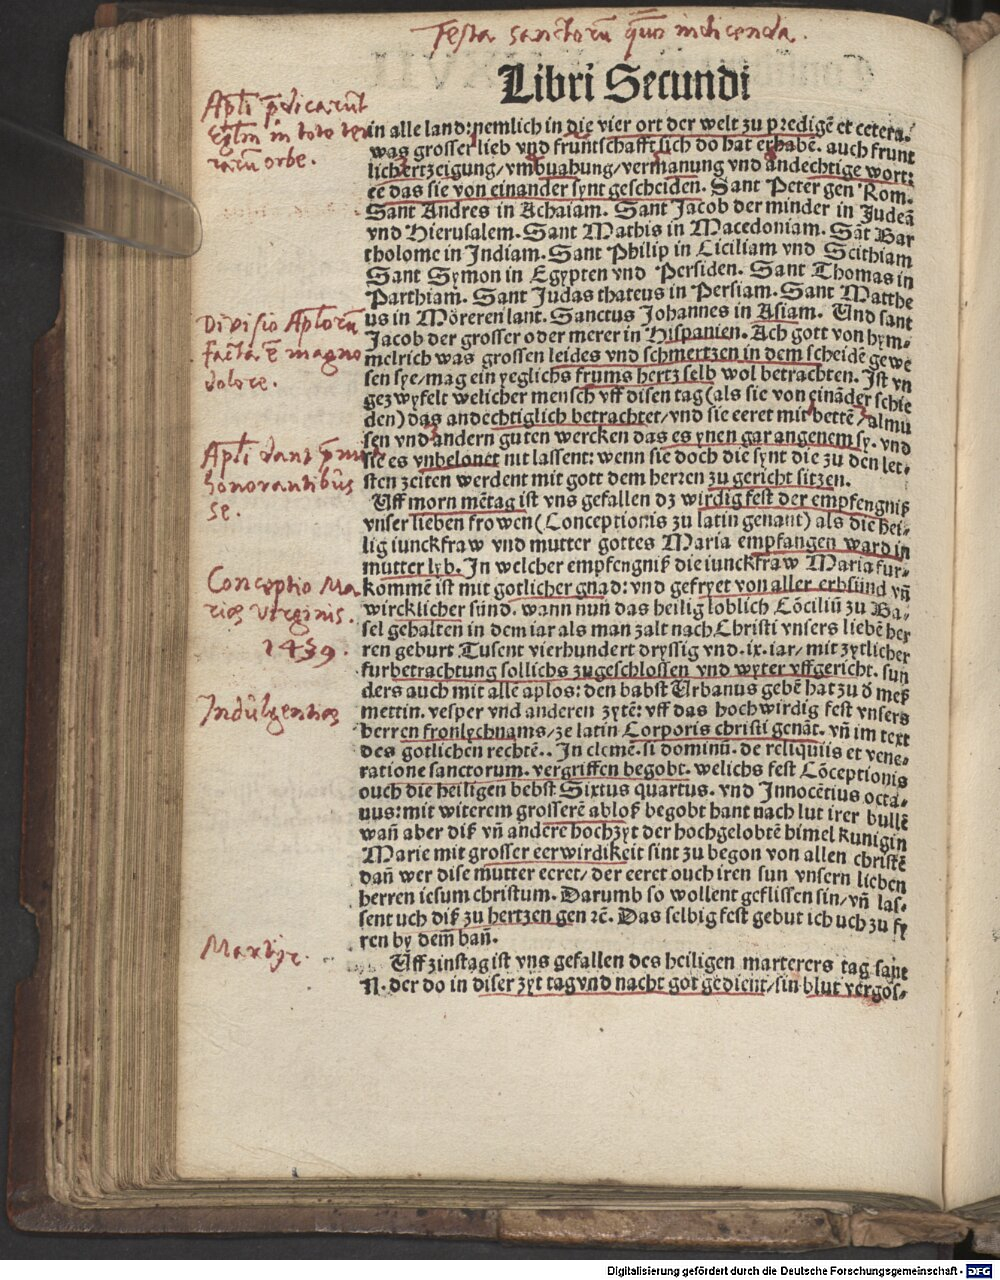 Festa sanctorū quō indicenda.
Libri Secundi
Apľi p̄dicarūt
Eǔgľm in toto ter
rarū orbe.
in alle land: nemlich in die vier ort der welt zu predigē et cetera.
was grosser lieb vnd fruntschafft sich do hat erhabē. auch frunt
lich ertzeigung/ vmbuahung/ vermanung vnd andechtige wort:
ee das sie von einander synt gescheiden. Sant Peter gen Rom.
Sant Andres in Achaiam. Sant Jacob der minder in Judeā
vnd Hierusalem. Sant Mathis in Macedoniam. Sāt Bar
tholome in Indiam. Sant Philip in Ciciliam vnd Scithiam
Sant Symon in Egypten vnd Persiden. Sant Thomas in
Parthiam. Sant Judas thateus in Persiam. Sant Matthe
us in Mörerenlant. Sanctus Johannes in Asiam. Und sant
Jacob der grosser oder merer in Hispanien. Ach gott von hym⸗
melrich was grossen leides vnd schmertzen in dem scheidē gewe
sen sye/ mag ein yeglichs frums hertz selb wol betrachten. Ist vn
gezwyfelt welicher mensch vff disen tag (als sie von eināder schie
den) das andechtiglich betrachtet/ vnd sie eeret mit bettē/ almu
sen vnd andern guten wercken das es ynen gar angenem sy. vnd
sie es vnbelonet nit lassent: wenn sie doch die synt die zu den let⸗
sten zeiten werdent mit gott dem herren zu gericht sitzen.
Divisio Apľorū
facta ē magno
dolore.
Apľi dant p̄mia
honorantibus
se.
Uff morn mētag ist vns gefallen dz wirdig fest der empfengniß
vnser lieben frowen (Conceptionis zu latin genant) als die hei⸗
lig iunckfraw vnd mutter gottes Maria empfangen ward in
mutter lyb. In welcher empfengniß die iunckfraw Maria fur⸗
kommē ist mit gotlicher gnad: vnd gefryet von aller erbsünd vn̄
wircklicher sünd. wann nun das heilig loblich Cōciliū zu Ba⸗
sel gehalten in dem iar als man zalt nach Christi vnsers liebē her
ren geburt Tusent vierhundert dryssig vnd .ix. iar/ mit zytlicher
furbetrachtung sollichs zugeschlossen vnd wyter vffgericht. sun
ders auch mit allē aplos: den babst Urbanus gebē hat zu d̄ meß
mettin. vesper vnd anderen zytē: vff das hochwirdig fest vnsers
herren fronlychnams/ ze latin Corporis christi genāt. vn̄ im text
des gotlichen rechtē.. In clemē. si dominū. de reliquiis et vene⸗
ratione sanctorum. vergriffen begobt. welichs fest Cōceptionis
ouch die heiligen bebst Sixtus quartus. vnd Innocētius octa⸗
uus: mit witerem grosserē abloß begobt hant nach lut irer bullē
wan̄ aber diß vn̄ andere hochzyt der hochgelobtē himel kunigin
Marie mit grosser eerwirdikeit sint zu begon von allen christē
dan̄ wer dise mutter eeret/ der eeret ouch iren sun vnsern lieben
herren iesum christum. Darumb so wollent geflissen sin/ vn̄ las⸗
sent uch diß zu hertzen gen ꝛē. Das selbig fest gebut ich uch zu fy
ren by dem̄ ban̄.
Conceptio Ma
riae virginis.
1439.
Indulgentias
Martyr.
Uff zinstag ist vns gefallen des heiligen marterers tag sant
N. der do in diser zyt tag vnd nacht got gedient/ sin blut vergos⸗
Digitalisierung gefördert durch die Deutsche Forschungsgemeinschaft - DFG